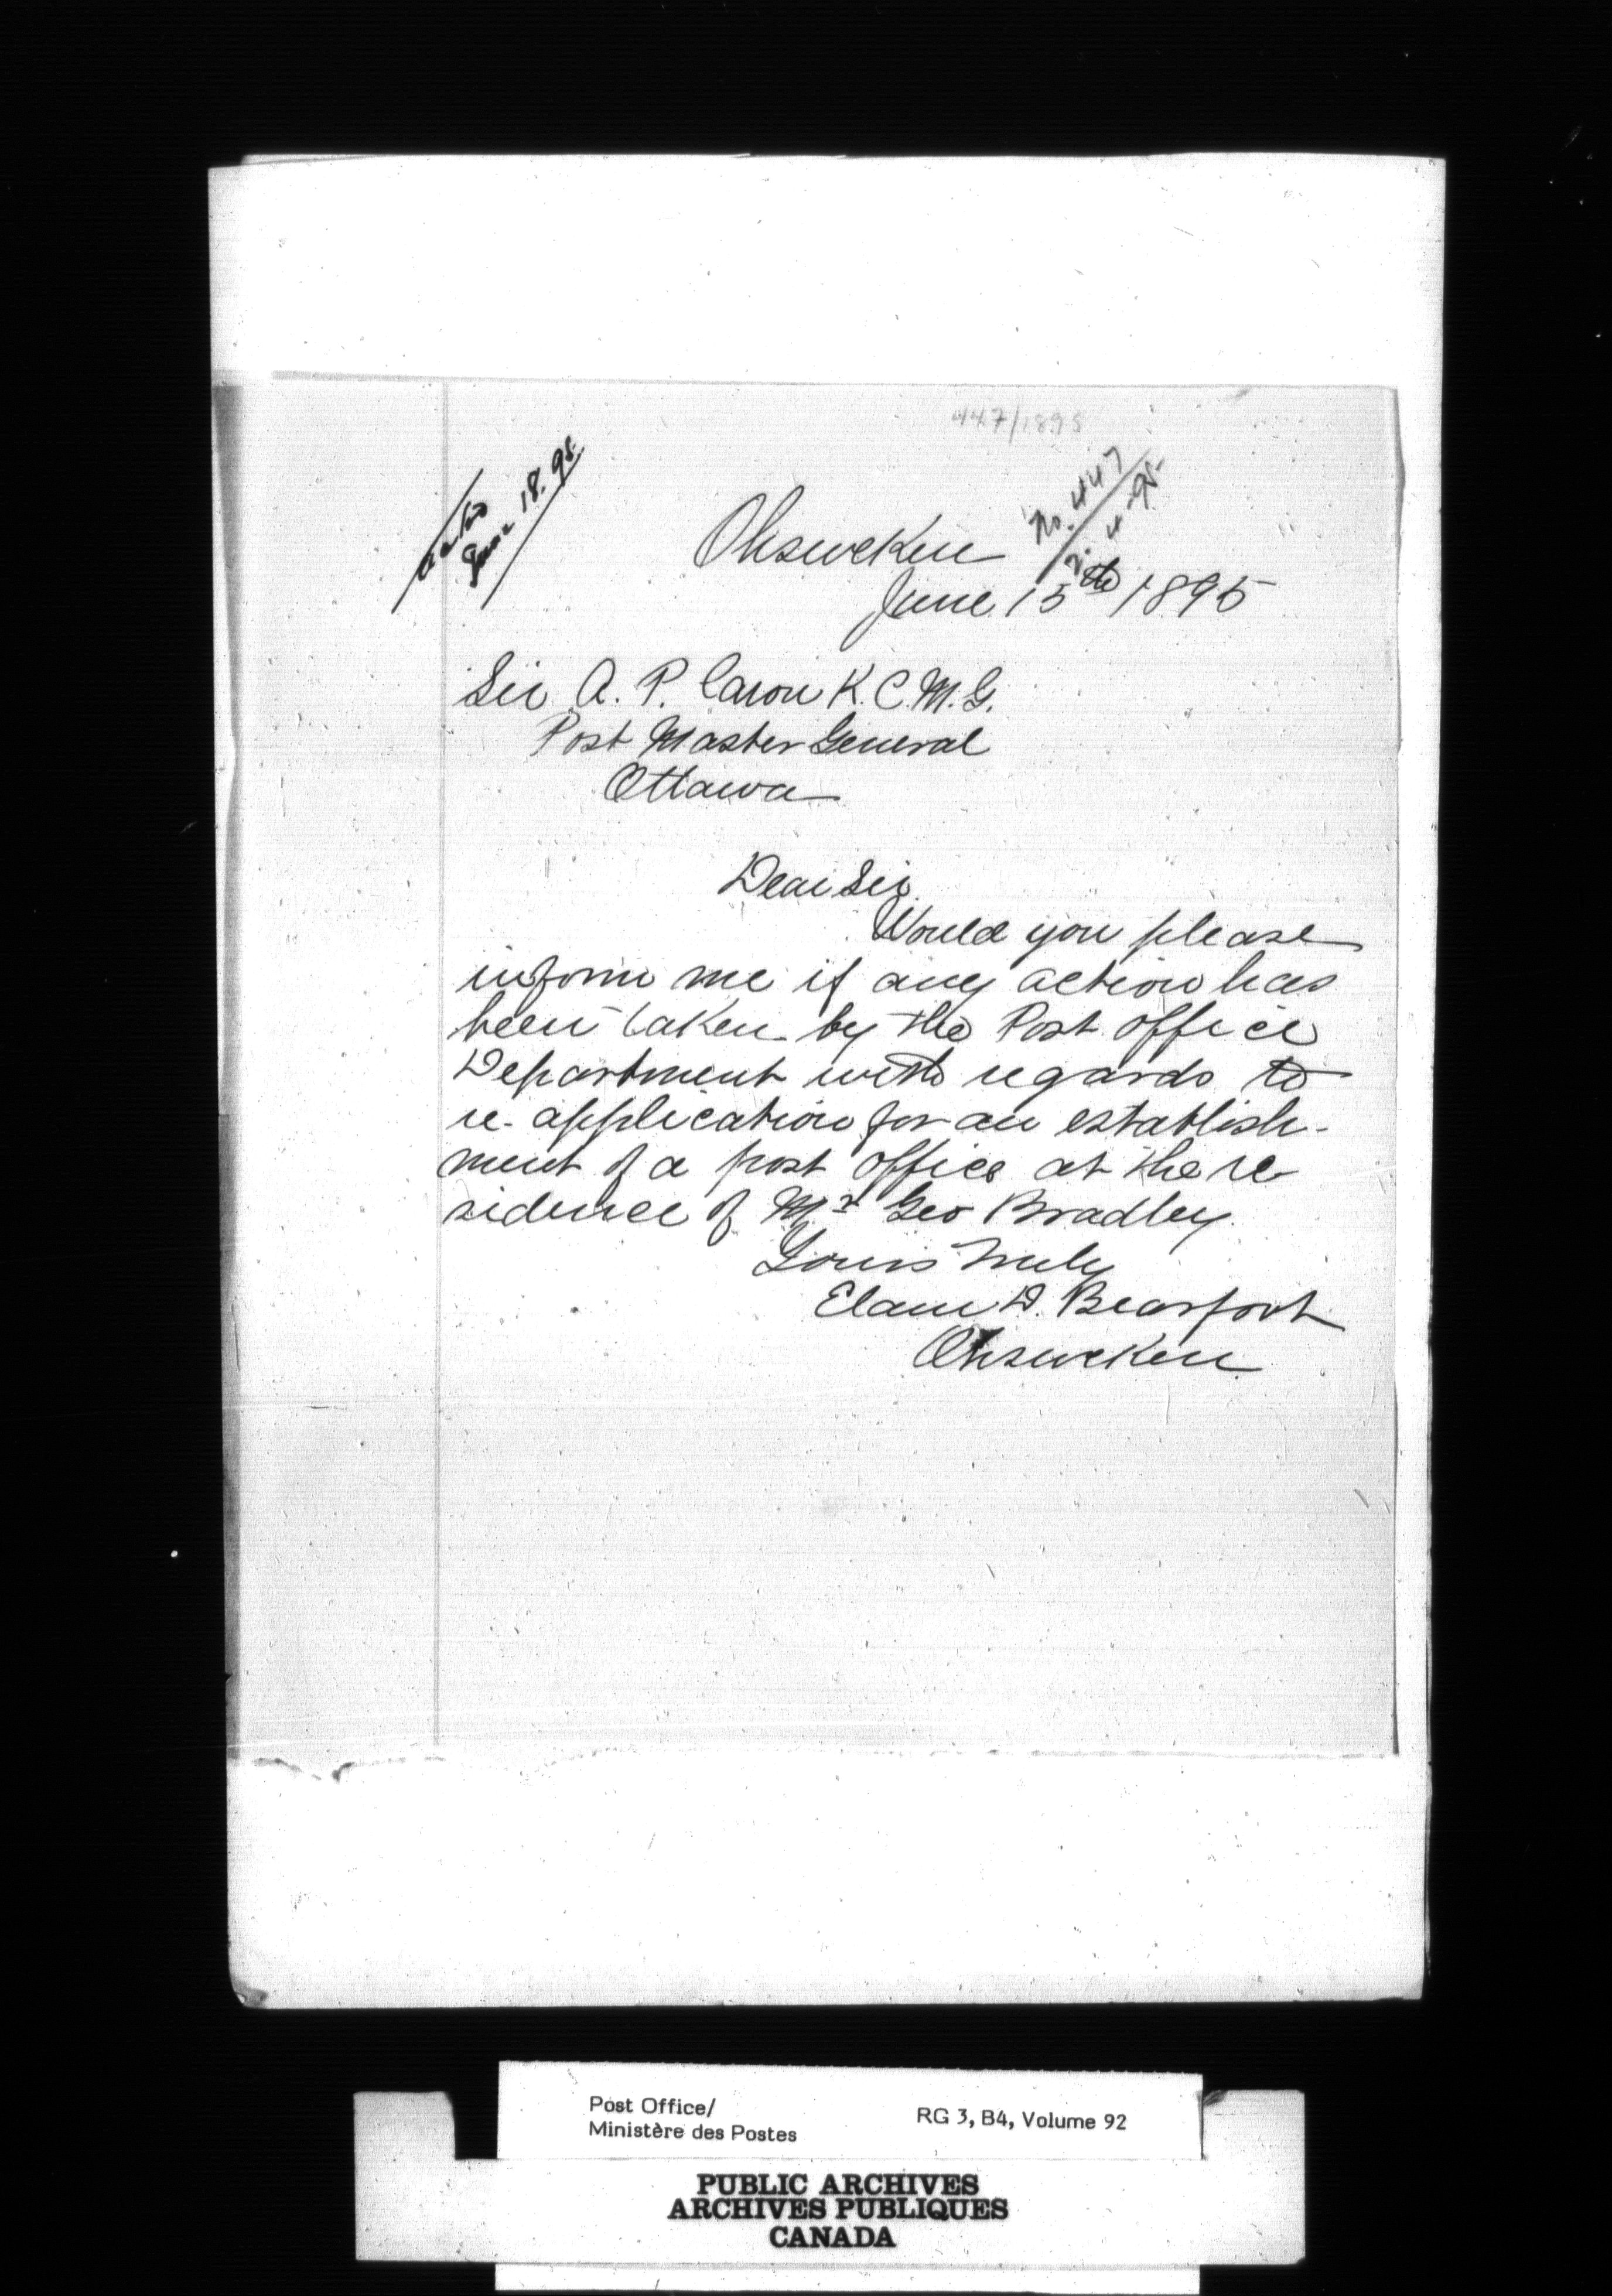 447/1895
No. 447
2. 4. 95
June 18. 95
Ohsweken
June 15th 1895
Sir A. P. Caron K.C.M.G.
Post Master General
Ottawa
Dear Sir
Would you please
inform me if any action has
been taken by the Post office
Department with regards to
re-application for an establish-
ment of a post office at the re
sidence of Mr Geo Bradley.
Yours Truly
Elam D. Bearfoot
Ohsweken
Post Office/
Ministère des Postes
RG 3, B4, Volume 92
PUBLIC ARCHIVES
ARCHIVES PUBLIQUES
CANADA